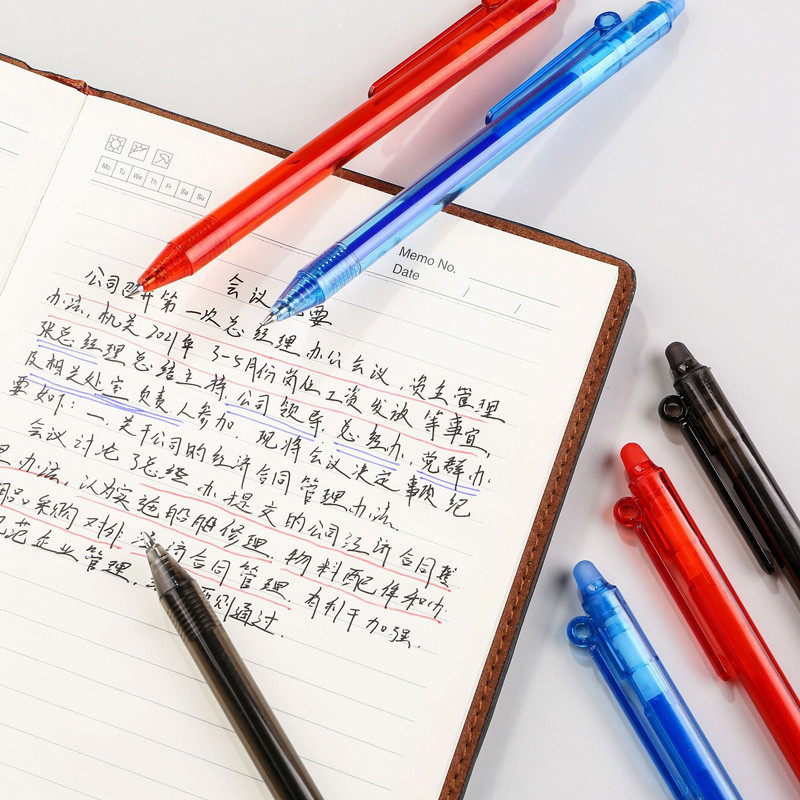 Mo Tu We Th Fr Sa Su
Memo No.
Date
会议 要
公司召开第一次总经理办公会议,资金管理
办法,机关2021年3-5月份岗位工资发放等事宜,
张总经理总结主持,公司领导,总经办,党群办
及相关处室负责人参加。现将会议决定事项纪
要如下:一、关于公司的经济合同管理办法。
会议讨论了总经办提交的公司经济合同
办法,认为实施船舶修理,物料配件和办
用品采购对外 经济合同管理,有利于加强,
规范企业管理, 原则通过.